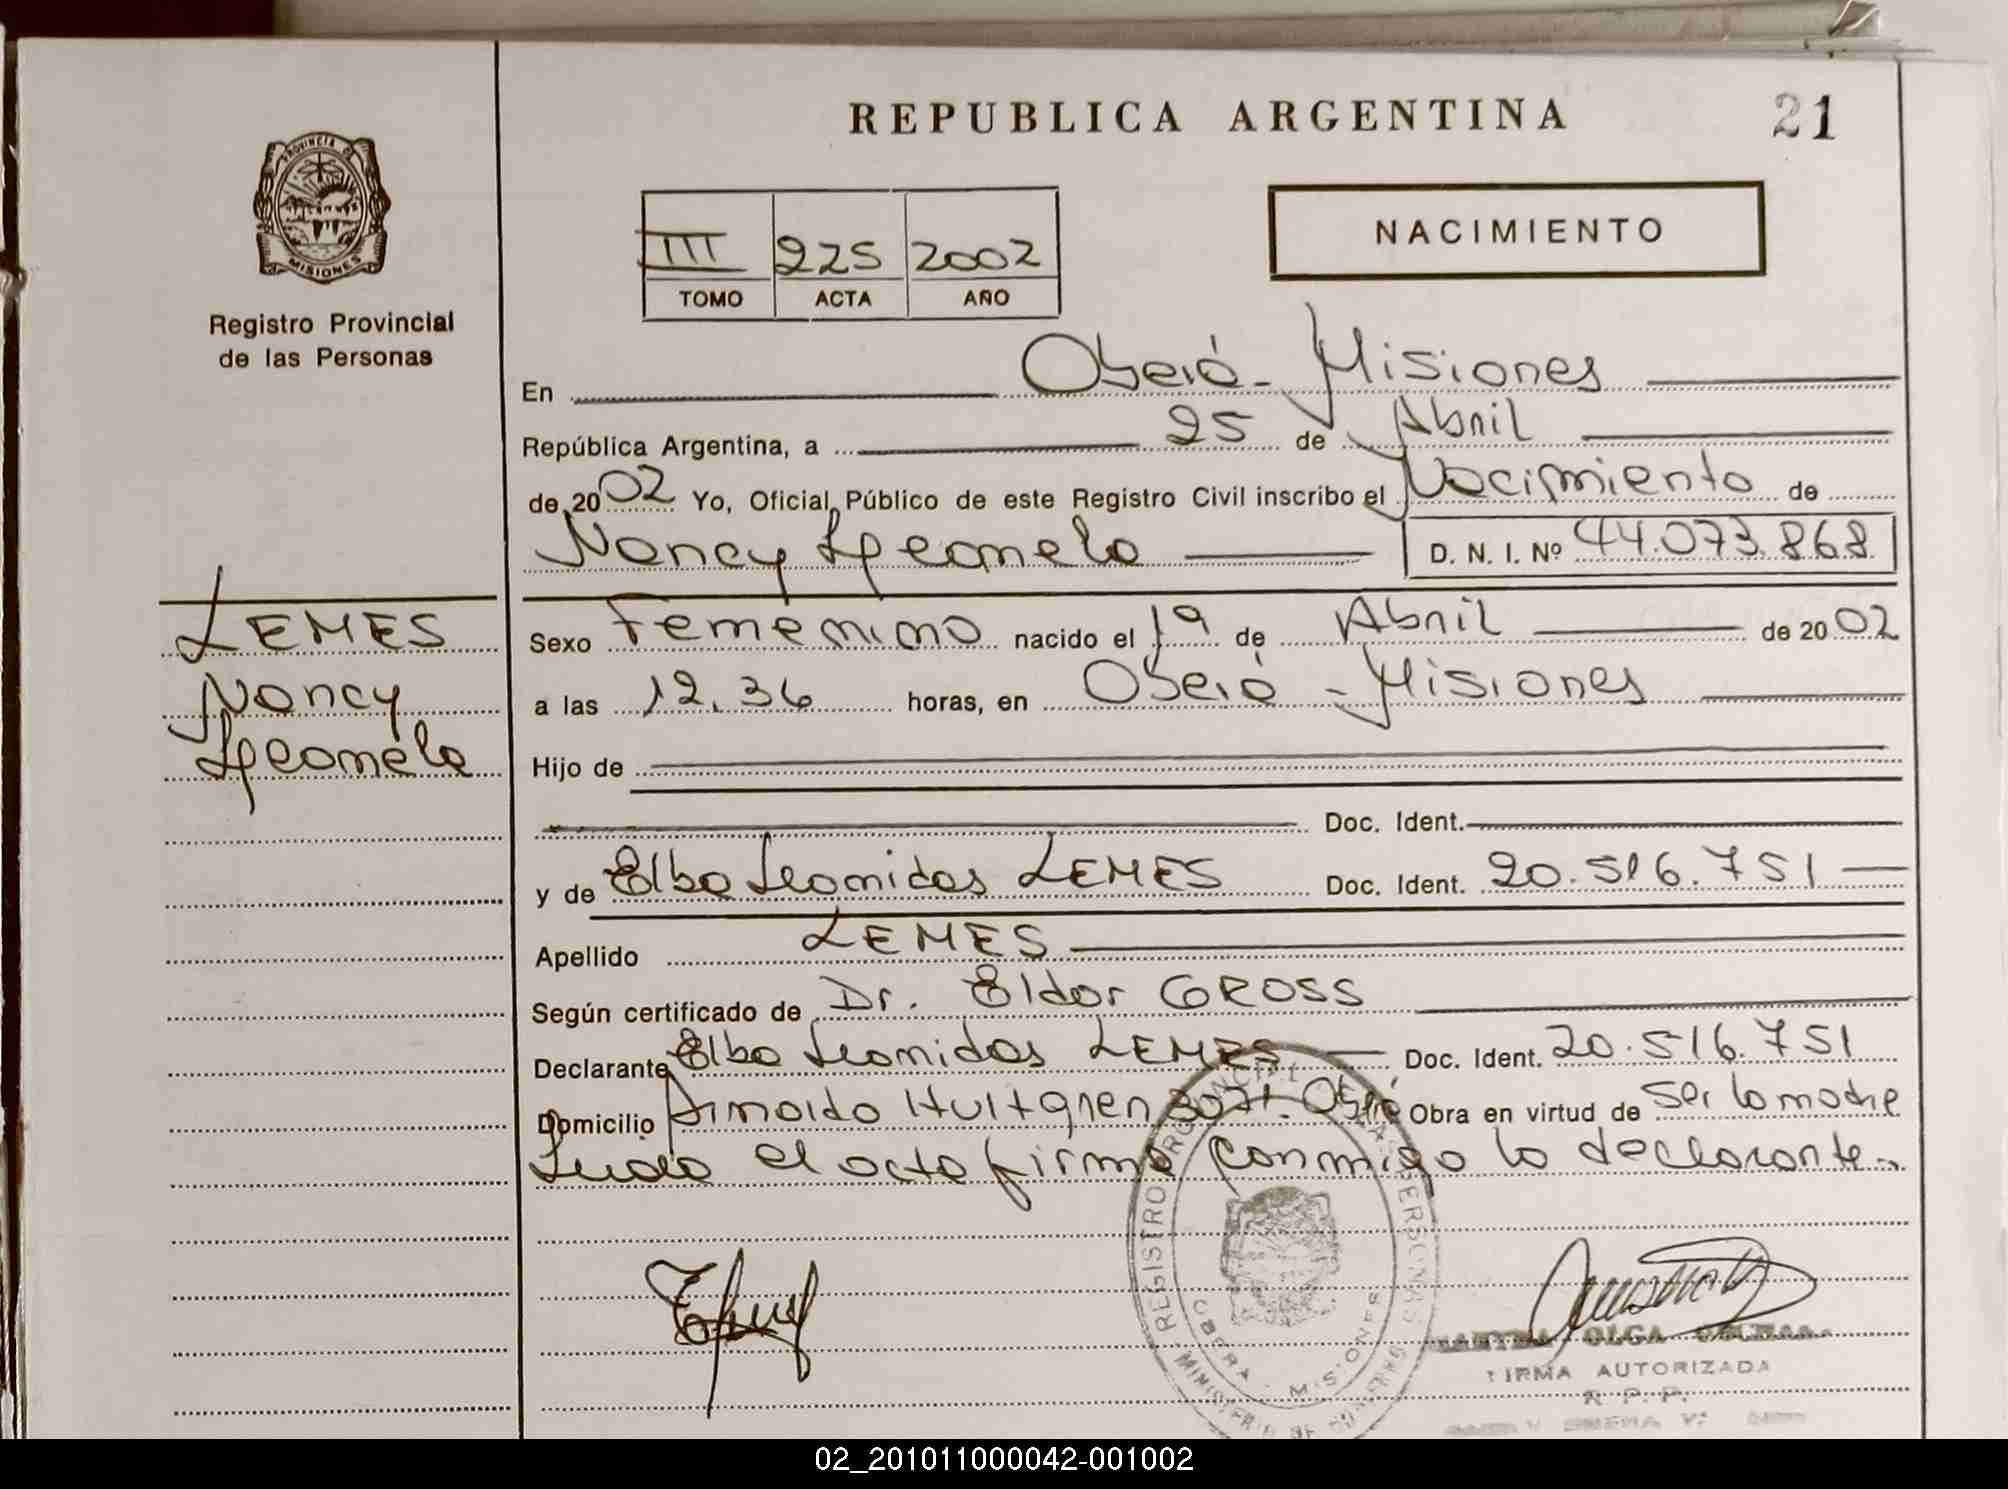 REPUBLICA ARGENTINA
21
PROVINCIA DE
MISIONES
Registro Provincial
de las Personas
III 225 2002
TOMO ACTA AÑO
NACIMIENTO
En Oberá - Misiones
República Argentina, a 25 de Abril
de 2002 Yo, Oficial Público de este Registro Civil inscribo el Nacimiento de
Nancy Ipeamela
D. N. I. Nº 44.073.868
LEMES
Nancy
Ipeamela
Sexo Femenino nacido el 19 de Abril de 2002
a las 12,36 horas, en Oberá - Misiones
Hijo de
Doc. Ident.
y de Elba Leonidas LEMES Doc. Ident. 20.516.751
Apellido LEMES
Según certificado de Dr. Eldor GROSS
Declarante Elba Leonidas LEMES Doc. Ident. 20.516.751
Domicilio Arnoldo Hultgren 3071. Oberá Obra en virtud de ser la madre
Leida el acta firma conmigo la declarante.
REGISTRO PROVINCIAL DE LAS PERSONAS
OBERA - MISIONES
MINISTERIO DE
OLGA
FIRMA AUTORIZADA
R. P. P.
02_201011000042-001002